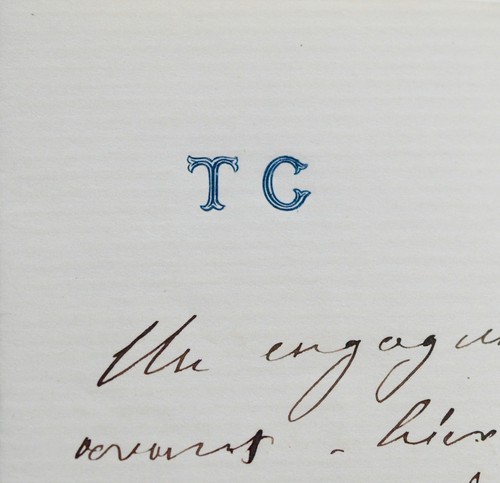 T C
Un engage
avant-hier